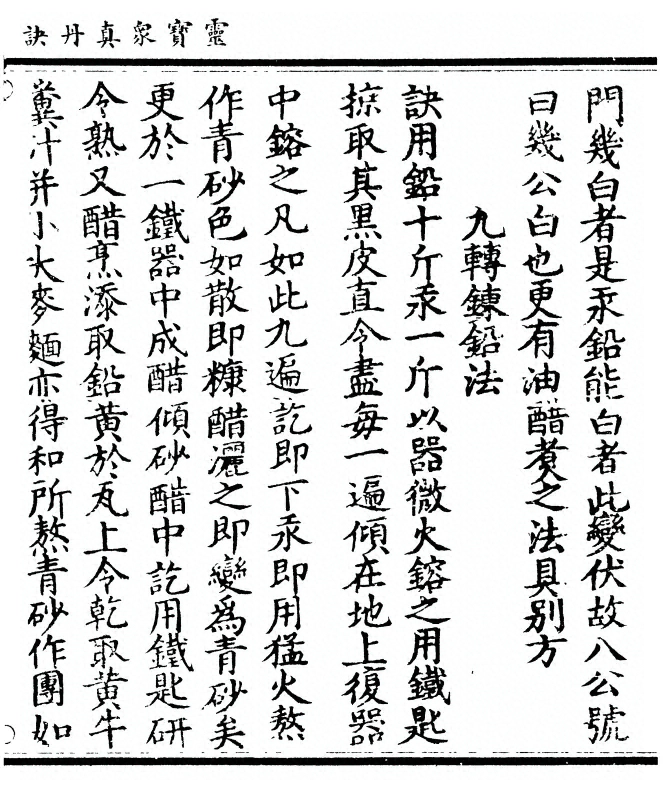 靈寶眾真丹訣
門幾白者是汞鉛能白者此變伏故八公號
曰幾公白也更有油醋煑之法具别方
九轉鍊鉛法
訣用鉛十斤汞一斤以器微火鎔之用鐵匙
掠取其黑皮直令盡每一遍傾在地上復器
中鎔之凡如此九遍訖即下汞即用猛火熬
作青砂色如散即糠醋灑之即變爲青砂矣
更於一鐵器中成醋傾砂醋中訖用鐵匙研
令熟又醋烹漆取鉛黄於瓦上令乾取黄牛
糞汁并小大麥麵亦得和所熬青砂作團如